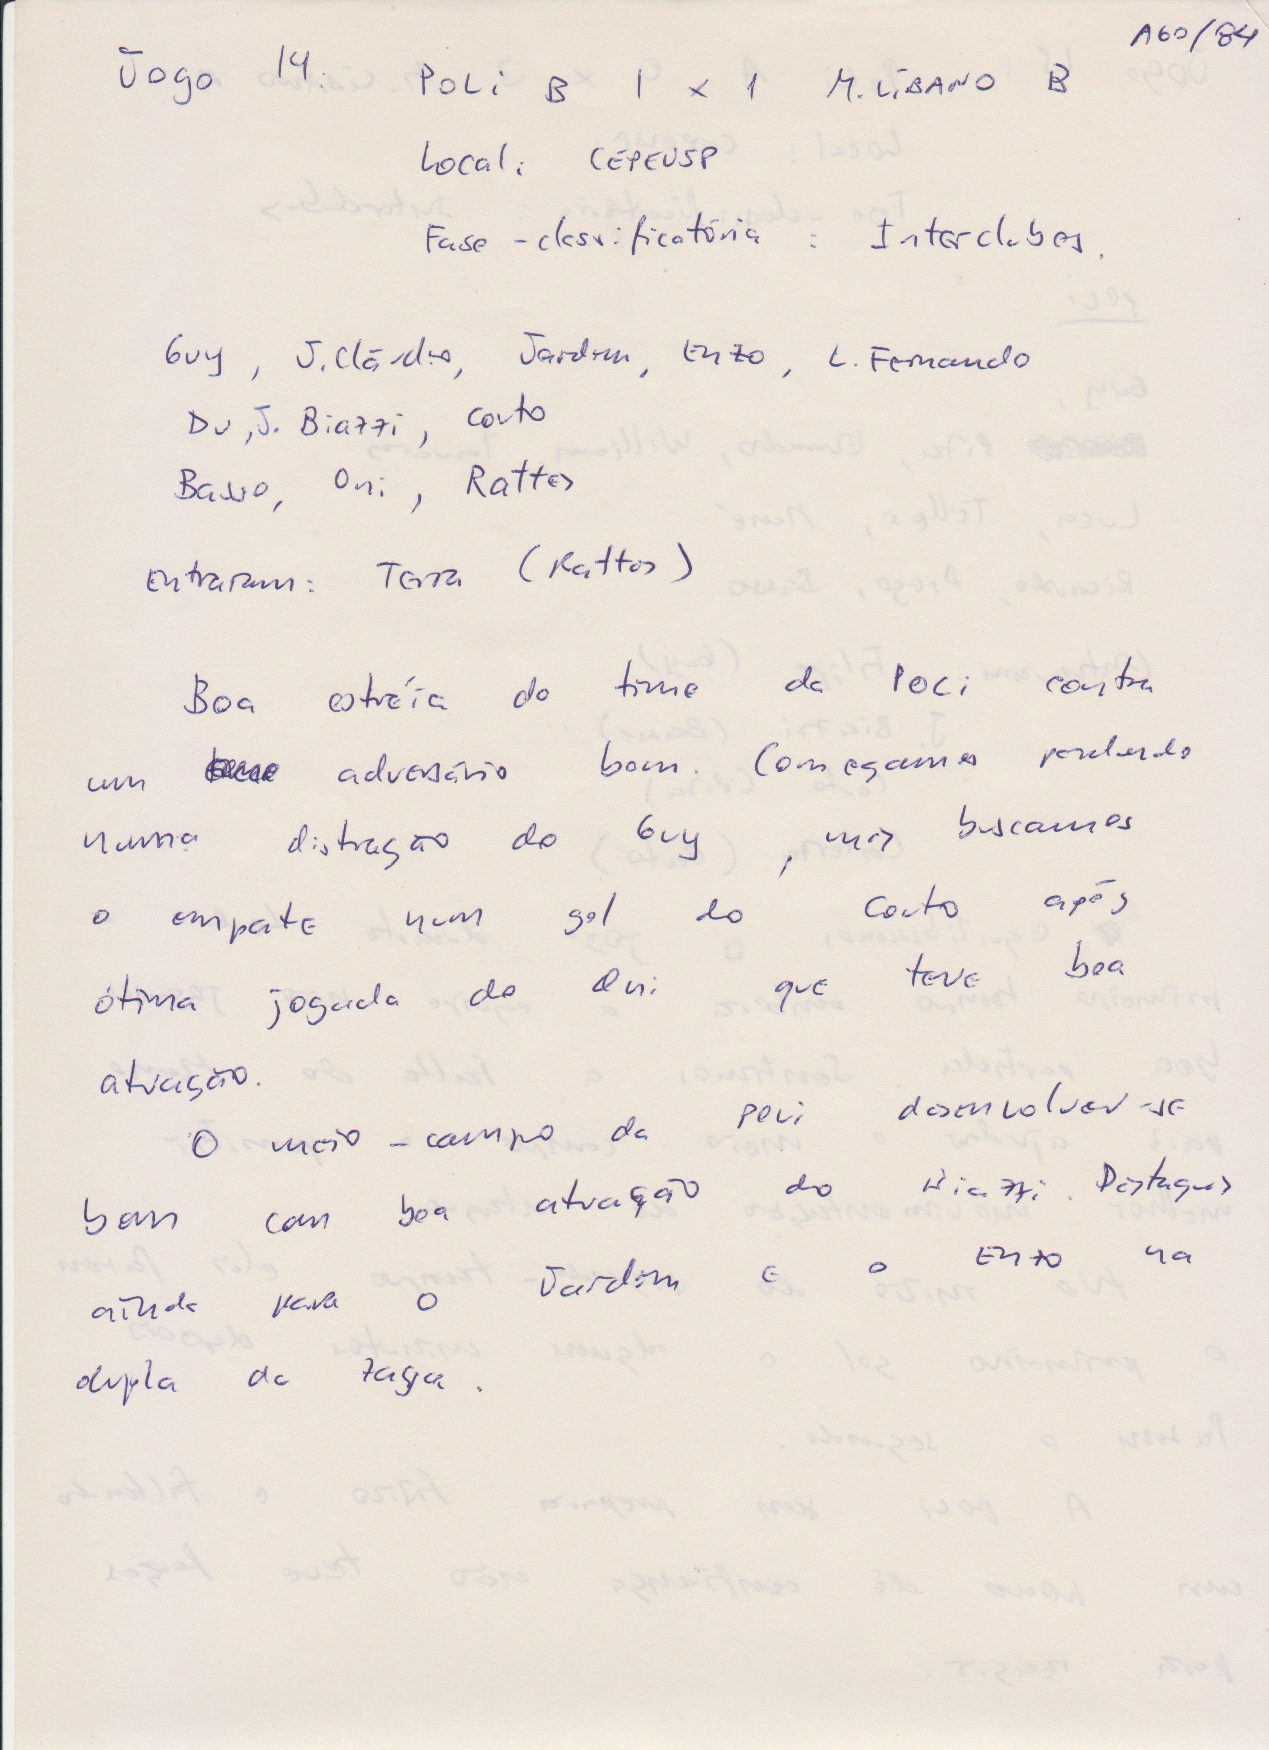 AGO/84
Jogo 14: POLI B 1 x 1 M. LÍBANO B
Local: CEPEUSP
Fase-classificatória: Interclubes.
Guy, J. Cláudio, Jardim, Enzo, L. Fernando
Du, J. Biazzi, Couto
Basso, Oni, Rattes
Entraram: Terra (Rattes)
Boa estréia do time da POLI contra
um adversário bom. Começamos perdendo
numa distração do Guy, mas buscamos
o empate num gol do Couto após
ótima jogada do Oni que teve boa
atuação.
O meio-campo da POLI desenvolveu-se
bem com boa atuação do Biazzi. Destaques
ainda para o Jardim e o Enzo na
dupla da zaga.